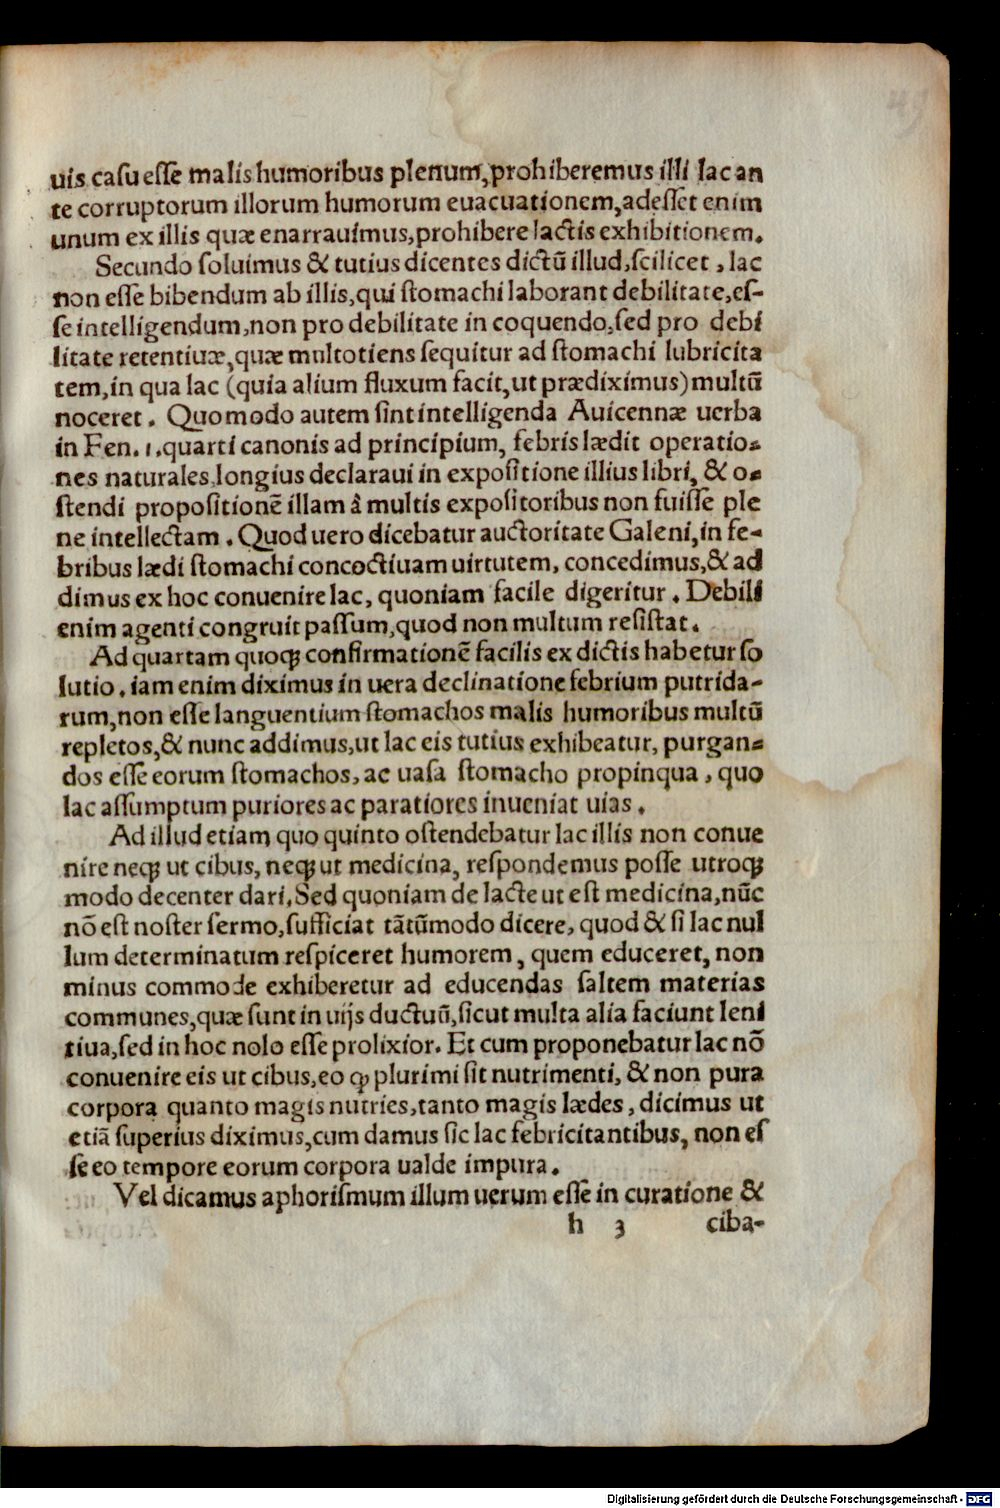 49
uis casu esse malis humoribus plenum, prohiberemus illi lac an
te corruptorum illorum humorum euacuationem, adesset enim
unum ex illis quæ enarrauimus, prohibere lactis exhibitionem.
Secundo soluimus & tutius dicentes dictū illud, scilicet, lac
non esse bibendum ab illis, qui stomachi laborant debilitate, es-
se intelligendum, non pro debilitate in coquendo, sed pro debi
litate retentiuæ, quæ multotiens sequitur ad stomachi lubricita
tem, in qua lac (quia alium fluxum facit, ut prædiximus) multū
noceret. Quomodo autem sint intelligenda Auicennæ uerba
in Fen. 1. quarti canonis ad principium, febris lædit operatio-
nes naturales, longius declaraui in expositione illius libri, & o-
stendi propositionē illam â multis expositoribus non fuisse ple
ne intellectam. Quod uero dicebatur auctoritate Galeni, in fe-
bribus lædi stomachi concoctiuam uirtutem, concedimus, & ad
dimus ex hoc conuenire lac, quoniam facile digeritur. Debili
enim agenti congruit passum, quod non multum resistat.
Ad quartam quoqꝫ confirmationē facilis ex dictis habetur so
lutio. iam enim diximus in uera declinatione febrium putrida-
rum, non esse languentium stomachos malis humoribus multū
repletos, & nunc addimus, ut lac eis tutius exhibeatur, purgan-
dos esse eorum stomachos, ac uasa stomacho propinqua, quo
lac assumptum puriores ac paratiores inueniat uias.
Ad illud etiam quo quinto ostendebatur lac illis non conue
nire neqꝫ ut cibus, neqꝫ ut medicina, respondemus posse utroqꝫ
modo decenter dari. Sed quoniam de lacte ut est medicina, nūc
nō est noster sermo, sufficiat tātūmodo dicere, quod & si lac nul
lum determinatum respiceret humorem, quem educeret, non
minus commode exhiberetur ad educendas saltem materias
communes, quæ sunt in uijs ductuū, sicut multa alia faciunt leni
tiua, sed in hoc nolo esse prolixior. Et cum proponebatur lac nō
conuenire eis ut cibus, eo ꝙ plurimi sit nutrimenti, & non pura
corpora quanto magis nutries, tanto magis lædes, dicimus ut
etiā superius diximus, cum damus sic lac febricitantibus, non es
se eo tempore eorum corpora ualde impura.
Vel dicamus aphorismum illum uerum esse in curatione &
h 3 ciba-
Digitalisierung gefördert durch die Deutsche Forschungsgemeinschaft - DFG